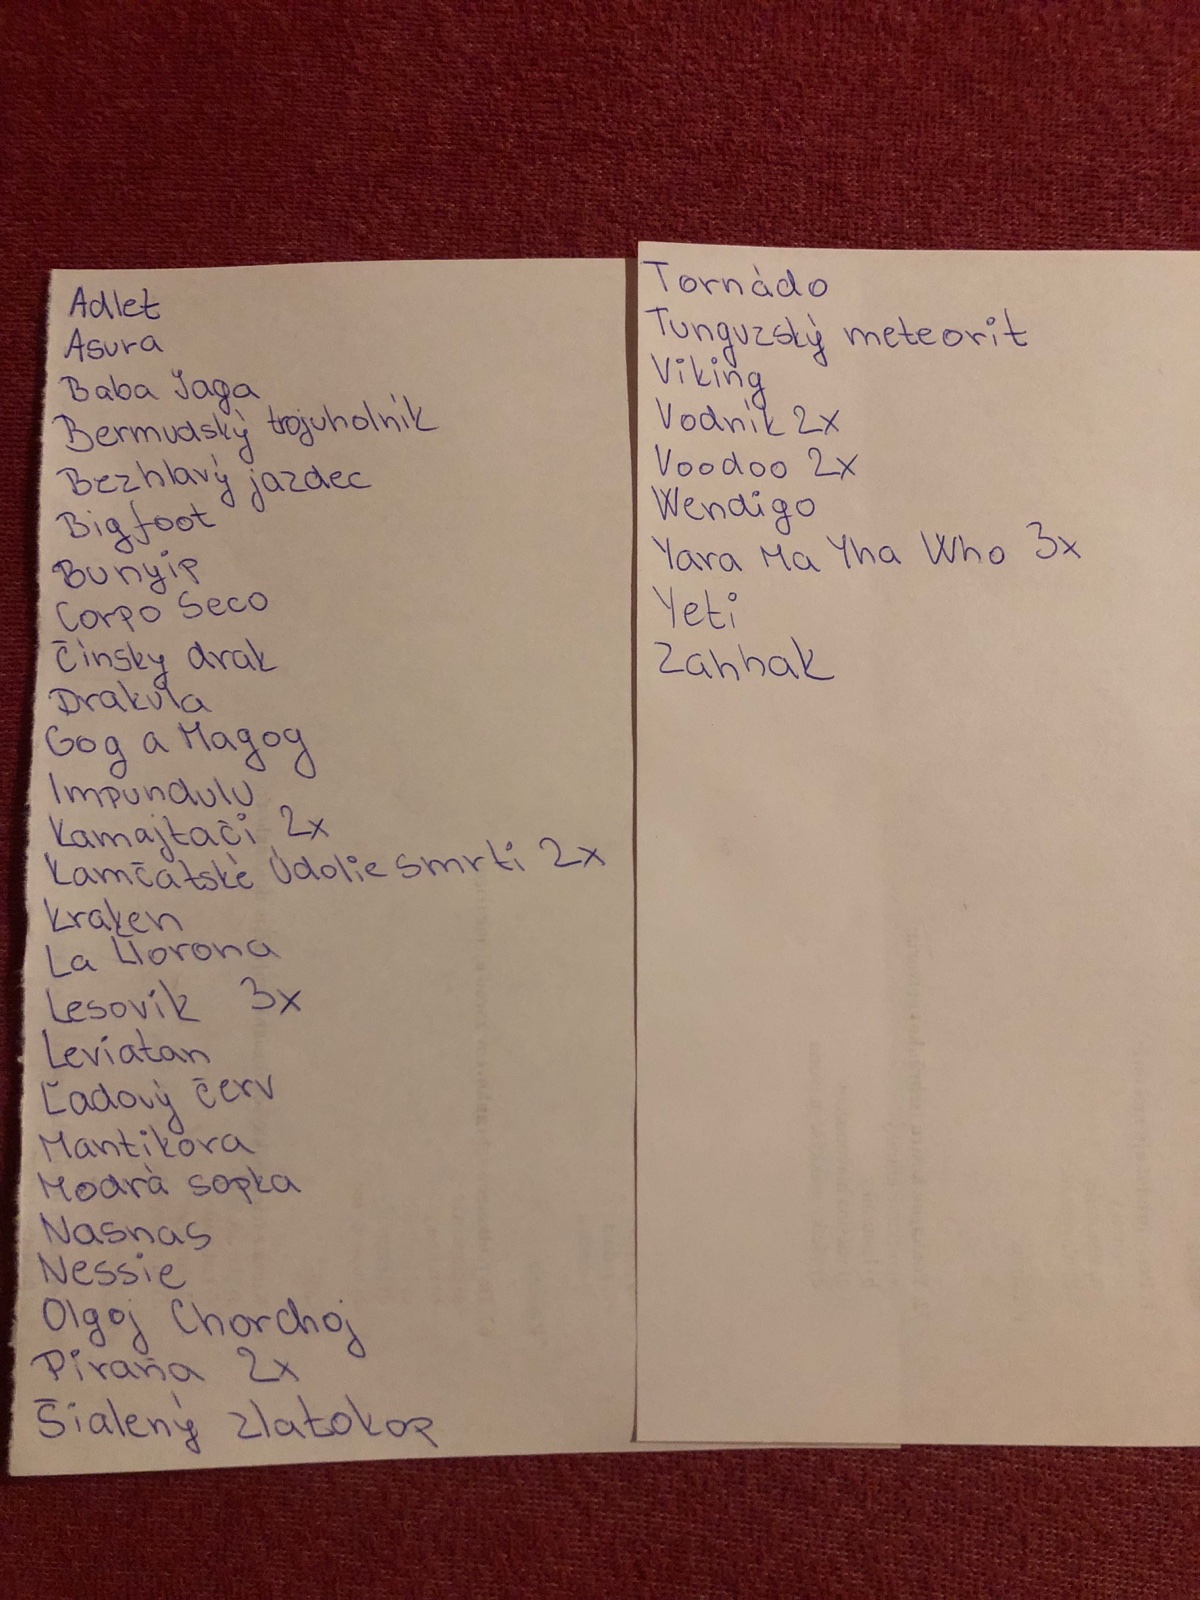 Adlet
Asura
Baba Jaga
Bermudský trojuholník
Bezhlavý jazdec
Bigfoot
Bunyip
Corpo Seco
Čínsky drak
Drakula
Gog a Magog
Impundulu
Kamajtači 2x
Kamčatské Údolie smrti 2x
Kraken
La Llorona
Lesovík 3x
Leviatan
Ľadový červ
Mantikora
Modrá sopka
Nasnas
Nessie
Olgoj Chorchoj
Piraňa 2x
Šialený zlatokop
Tornádo
Tunguzský meteorit
Viking
Vodník 2x
Voodoo 2x
Wendigo
Yara Ma Yha Who 3x
Yeti
Zahhak